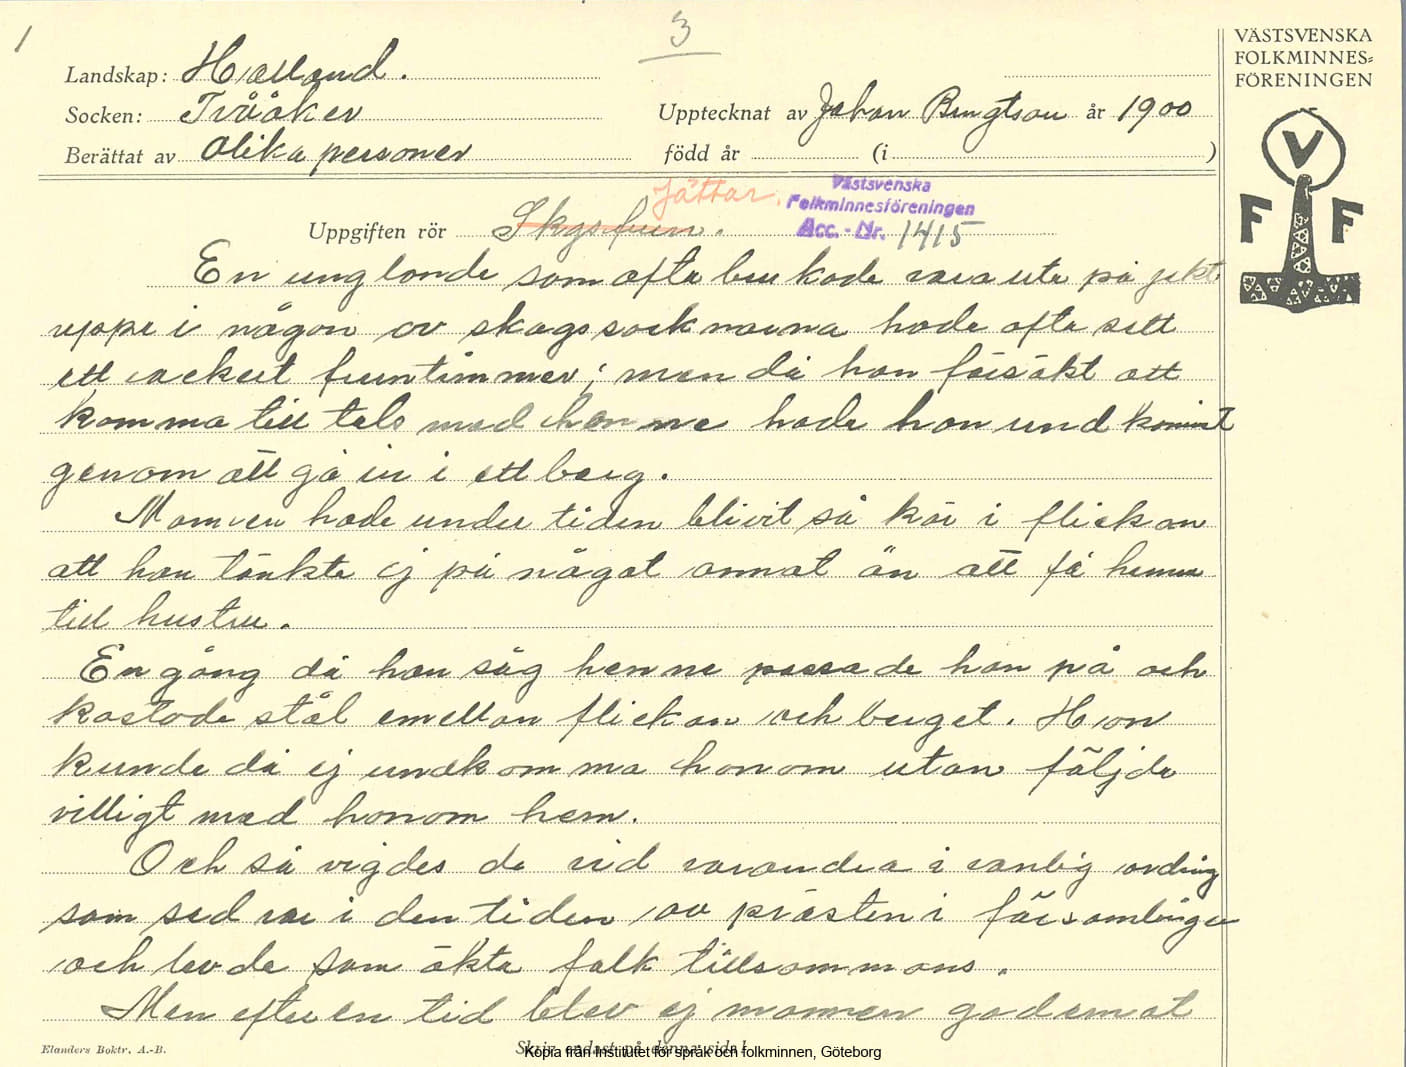 1
3
VÄSTSVENSKA
FOLKMINNES=
FÖRENINGEN
V
F F
Landskap: Halland.
Socken: Tvååker Upptecknat av Johan Bengtson år 1900
Berättat av Olika personer född år (i )
Jättar.
Västsvenska
Folkminnesföreningen
Acc. - Nr. 1415
Uppgiften rör Skgsfrun.
En ung bonde som ofta brukade vara ute på jakt
uppe i någon av skogssocknarna hade ofta sett
ett vackert fruntimmer; men då han försökt att
komma till tals med henne hade hon undkommit
genom att gå in i ett berg.
Mannen hade under tiden blivit så kär i flickan
att han tänkte ej på något annat än att få henne
till hustru.
En gång då han såg henne passade han på och
kastade stål emellan flickan och berget. Hon
kunde då ej undkomma honom utan följde
villigt med honom hem.
Och så vigdes de vid varandra i vanlig ordning
som sed var i den tiden av prästen i församlingen
och levde som äkta folk tillsammans.
Men efter en tid blev ej mannen god emot
Elanders Boktr. A.-B.
Skriv endast på denna sida!
Kopia från Institutet för språk och folkminnen, Göteborg